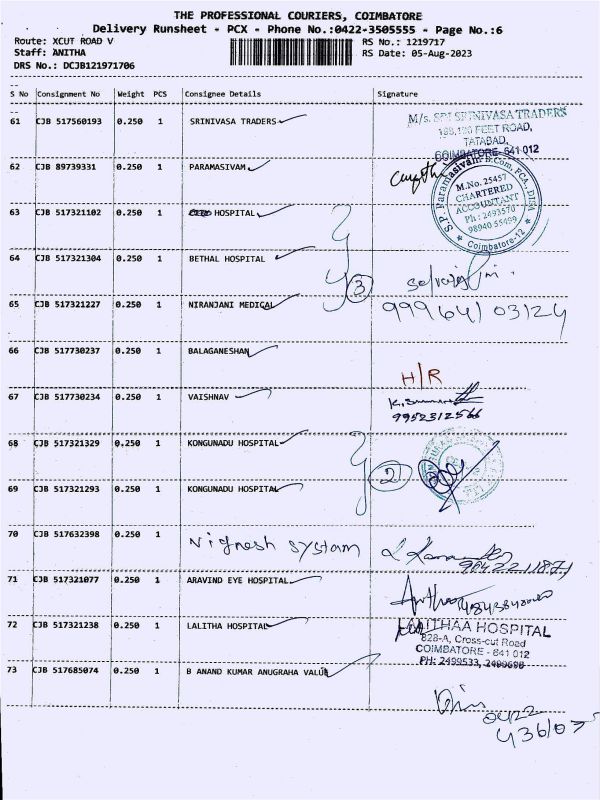 THE PROFESSIONAL COURIERS, COIMBATORE
Delivery Runsheet - PCX - Phone No.:0422-3505555 - Page No.:6
Route: XCUT ROAD V RS No.: 1219717
Staff: ANITHA RS Date: 05-Aug-2023
DRS No.: DCJB121971706
S No Consignment No Weight PCS Consignee Details Signature
61 CJB 517560193 0.250 1 SRINIVASA TRADERS
M/s. SRI SRINIVASA TRADERS
FEET ROAD,
TATABAD,
COIMBATORE- 641 012
62 CJB 89739331 0.250 1 PARAMASIVAM
S.P. Paramasivan B.Com, FCA.,
M.No. 25457
CHARTERED
ACCOUNTANT
Ph : 2493570
98940 55499
Coimbatore-12
63 CJB 517321102 0.250 1 HOSPITAL
64 CJB 517321304 0.250 1 BETHAL HOSPITAL
3
65 CJB 517321227 0.250 1 NIRANJANI MEDICAL
99964103124
66 CJB 517730237 0.250 1 BALAGANESHAN
H/R
67 CJB 517730234 0.250 1 VAISHNAV
9952312566
68 CJB 517321329 0.250 1 KONGUNADU HOSPITAL
2
69 CJB 517321293 0.250 1 KONGUNADU HOSPITAL
70 CJB 517632398 0.250 1 Vignesh systam
71 CJB 517321077 0.250 1 ARAVIND EYE HOSPITAL
72 CJB 517321238 0.250 1 LALITHA HOSPITAL
LALITHAA HOSPITAL
828-A, Cross-cut Road
COIMBATORE - 641 012
PH: 2499533, 2499698
73 CJB 517685074 0.250 1 B ANAND KUMAR ANUGRAHA VALUE
0422